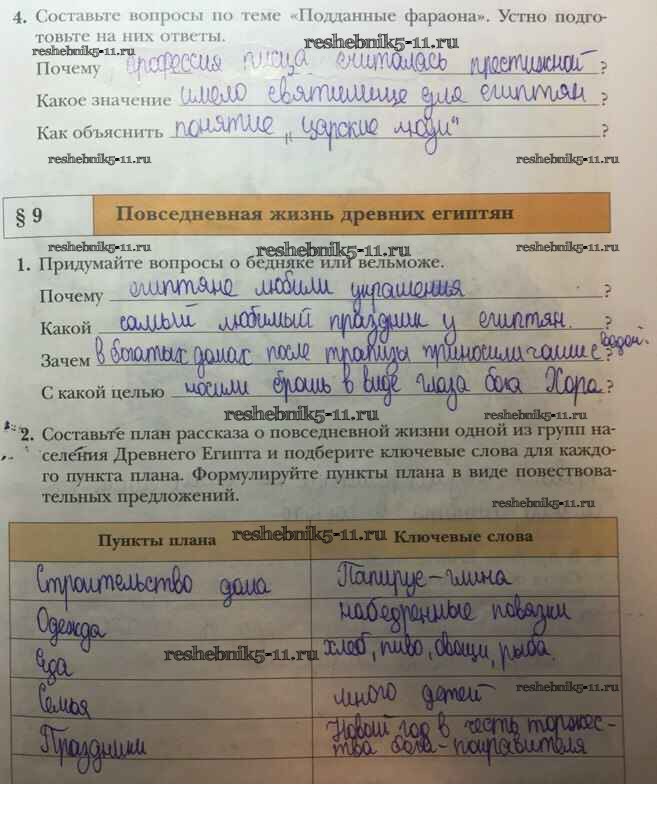 4. Составьте вопросы по теме «Подданные фараона». Устно подго-
товьте на них ответы.
reshebnik5-11.ru
Почему профессия писца считалась престижной ?
Какое значение имело святилище для египтян ?
Как объяснить понятие „царские люди" ?
reshebnik5-11.ru reshebnik5-11.ru
§ 9 Повседневная жизнь древних египтян
reshebnik5-11.ru reshebnik5-11.ru reshebnik5-11.ru
1. Придумайте вопросы о бедняке или вельможе.
Почему египтяне любили украшения ?
Какой самый любимый праздник у египтян. ?
Зачем в богатых домах после трапизы приносили чаши с водой. ?
С какой целью носили брошь в виде глаза бога Хора ?
reshebnik5-11.ru reshebnik5-11.ru
2. Составьте план рассказа о повседневной жизни одной из групп на-
селения Древнего Египта и подберите ключевые слова для каждо-
го пункта плана. Формулируйте пункты плана в виде повествова-
тельных предложений.
reshebnik5-11.ru
Пункты плана reshebnik5-11.ru Ключевые слова
Строительство дома Папирус - глина
Одежда набедренные повязки
Еда reshebnik5-11.ru хлеб, пиво, овощи, рыба.
Семья много детей reshebnik5-11.ru
Праздники Новый год в честь торжес-
тва бога-покравителя